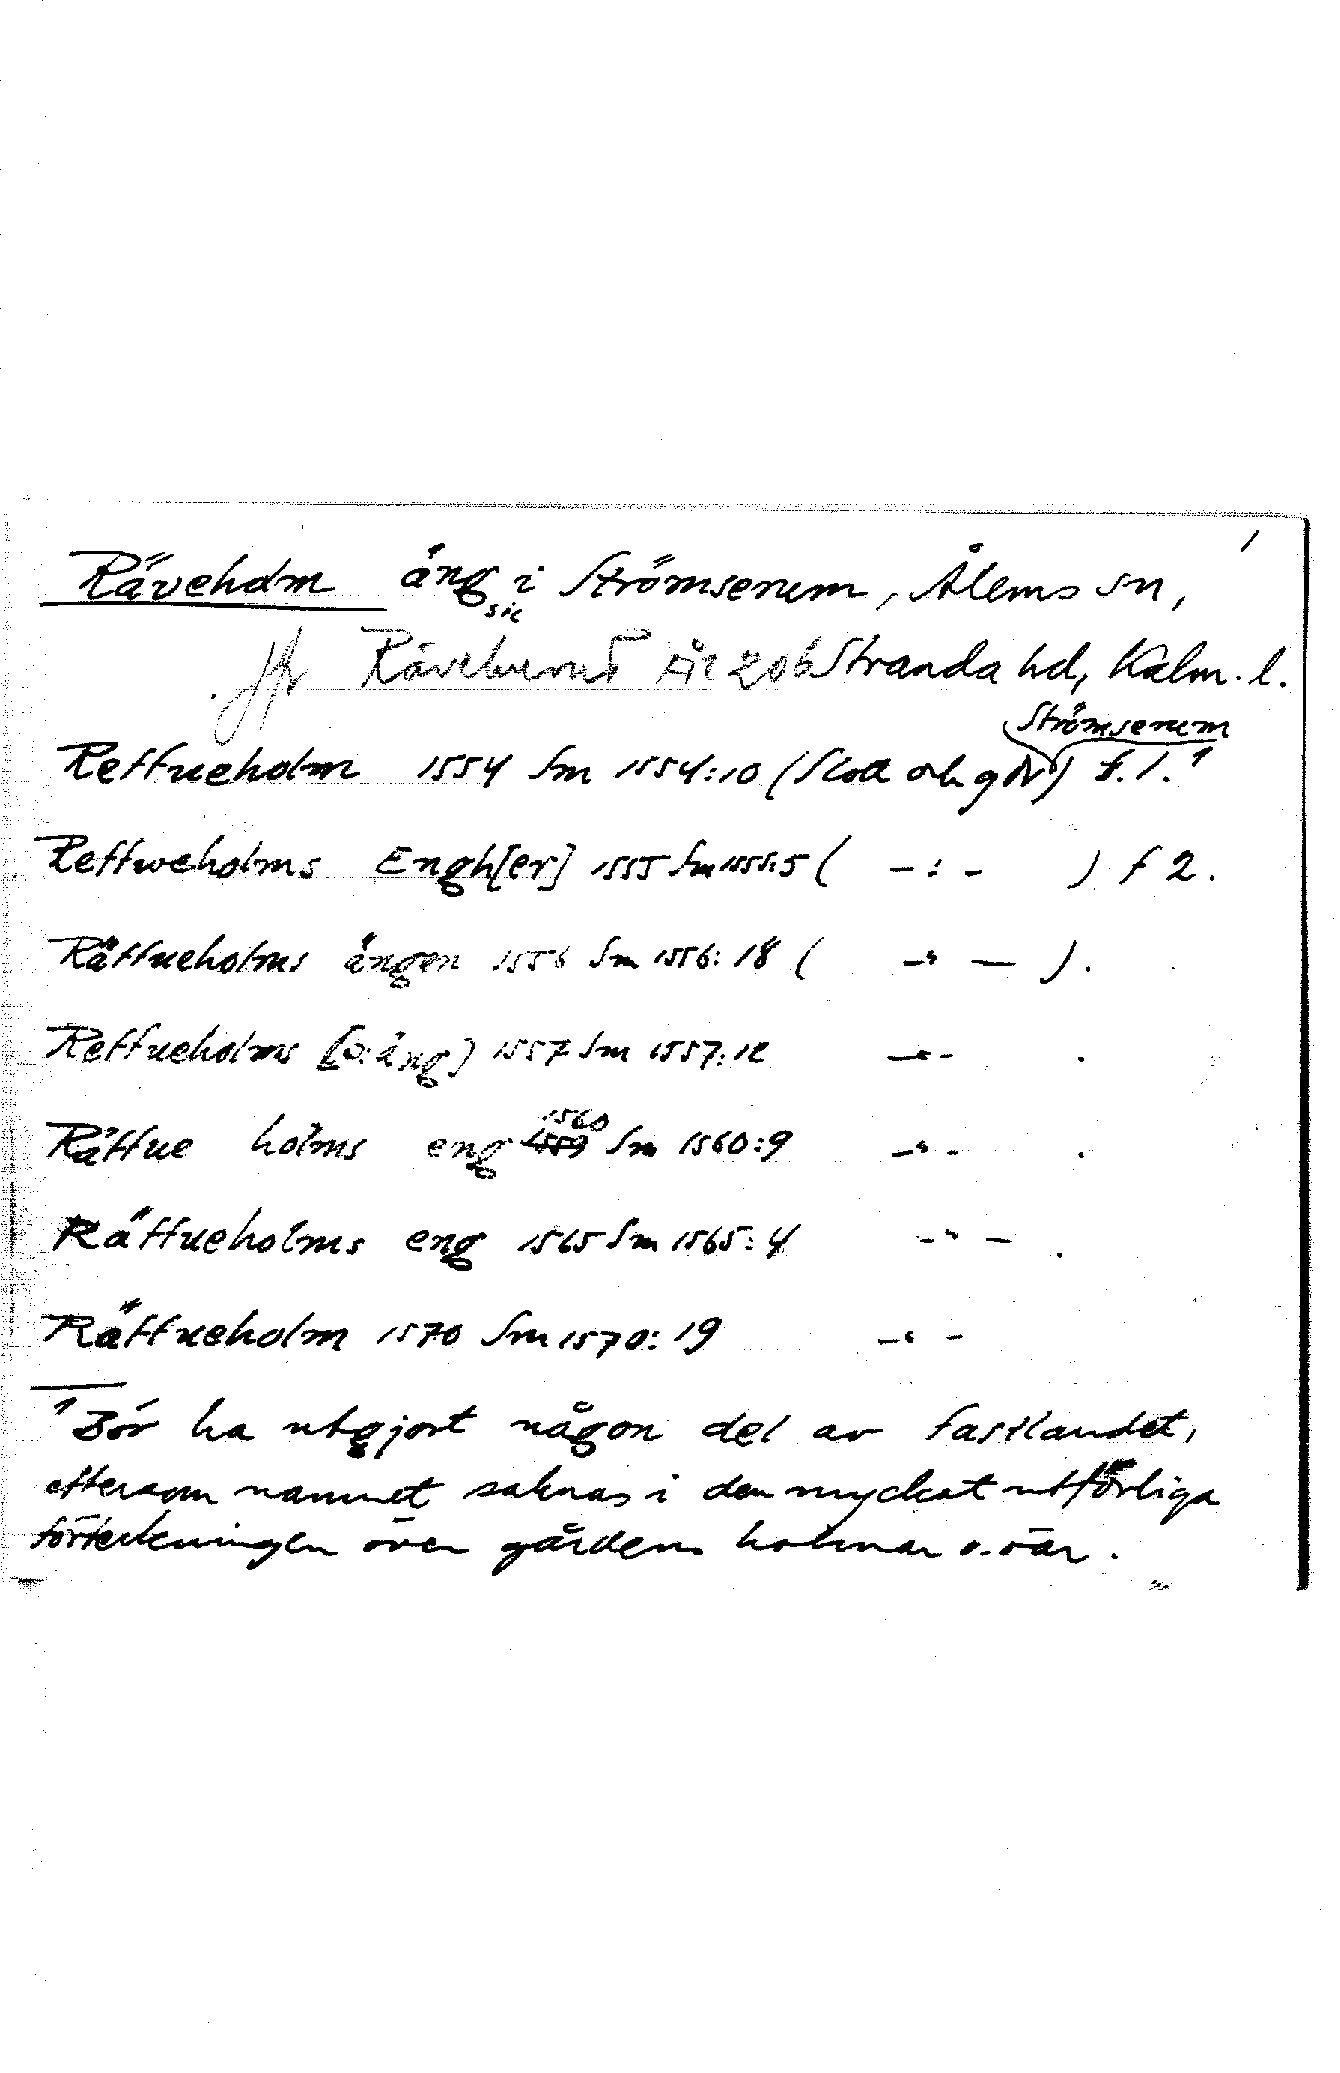 1
Räveholm äng i Strömserum, Ålems sn,
sic
Jfr Stranda hd, Kalm. l.
Strömserum
Reffueholm 1554 Sm 1554:10 (Slott och gdr) f. 1.¹
Reffweholms Engh[er] 1555 Sm 1555:5 ( -:- ) f 2.
Räffueholms ängen 1556 Sm 1556:18 ( -"- ).
Reffueholms [ɔ: äng] 1557 Sm 1557:12 -"- .
1560
Räffue holms eng 1559 Sm 1560:9 -"- .
Räffueholms eng 1565 Sm 1565:4 -"- .
Räffueholm 1570 Sm 1570:19 -"-
¹ Bör ha utgjort någon del av fastlandet,
eftersom namnet saknas i den mycket utförliga
förteckningen över gårdens holmar o. öar.